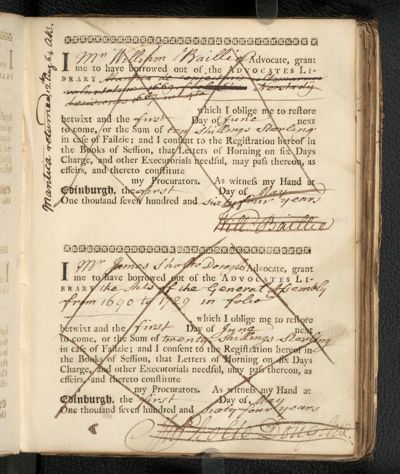 Mantica returned, 12 Aug 64 AB.
I Mr William Baillie Advocate, grant
me to have borrowed out of the ADVOCATES LI-
BRARY
which I oblige me to restore
betwixt and the first Day of June next
to come, or the Sum of ten Shillings Sterling
in case of Failzie; and I consent to the Registration hereof in
the Books of Session, that Letters of Horning on six Days
Charge, and other Executorials needful, may pass thereon, as
effeirs, and thereto constitute
my Procurators. As witness my Hand at
Edinburgh, the first Day of May
One thousand seven hundred and sixty four years
Will Baillie
I Mr James Sholto Douglas Advocate, grant
me to have borrowed out of the ADVOCATES LI-
BRARY the Acts of the General Assembly
from 1690 to 1729 in folio
which I oblige me to restore
betwixt and the first Day of June next
to come, or the Sum of twenty Shillings Sterling
in case of Failzie; and I consent to the Registration hereof in
the Books of Session, that Letters of Horning on six Days
Charge, and other Executorials needful, may pass thereon, as
effeirs, and thereto constitute
my Procurators. As witness my Hand at
Edinburgh, the first Day of May
One thousand seven hundred and sixty four years
Sholto Douglas